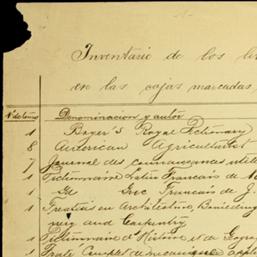 Inventario de los
en las cajas marcadas
Denominacion y autor
1 Boyer's Royal Dictionary
8 American Agriculturist
7 Journal des connaissances
1 Dictionnaire Latin Francais de
1 Id Grec Francais de J.
1 Treatise on Architecture, Building
and Carpentry
1 Dictionnaire d'Histoire et de
1 Traité Complet de mecanique